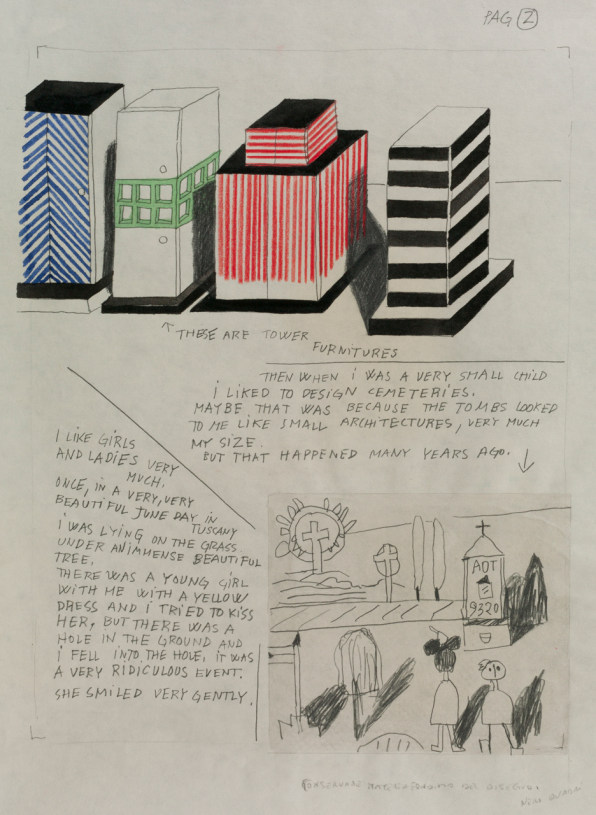 PAG 2
↑ THESE ARE TOWER
FURNITURES
THEN WHEN I WAS A VERY SMALL CHILD
I LIKED TO DESIGN CEMETERIES.
MAYBE THAT WAS BECAUSE THE TOMBS LOOKED
TO ME LIKE SMALL ARCHITECTURES, VERY MUCH
MY SIZE.
BUT THAT HAPPENED MANY YEARS AGO. ↓
I LIKE GIRLS
AND LADIES VERY
MUCH.
ONCE, IN A VERY, VERY
BEAUTIFUL JUNE DAY IN
TUSCANY
I WAS LYING ON THE GRASS
UNDER AN IMMENSE BEAUTIFUL
TREE.
THERE WAS A YOUNG GIRL
WITH ME WITH A YELLOW
DRESS AND I TRIED TO KISS
HER, BUT THERE WAS A
HOLE IN THE GROUND AND
I FELL INTO THE HOLE. IT WAS
A VERY RIDICULOUS EVENT.
SHE SMILED VERY GENTLY.
AOT
9320